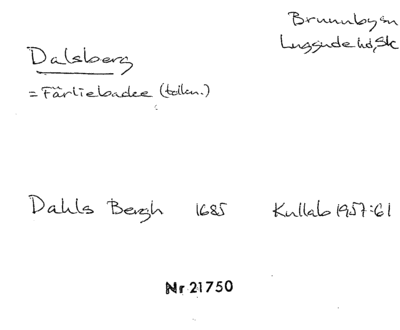 Brunnbyan
Luggude hd, Sk
Dalsberg
= Färliebackee (tolkn.)
Dahls Bergh 1685 Kullab 1957:61
Nr 21750